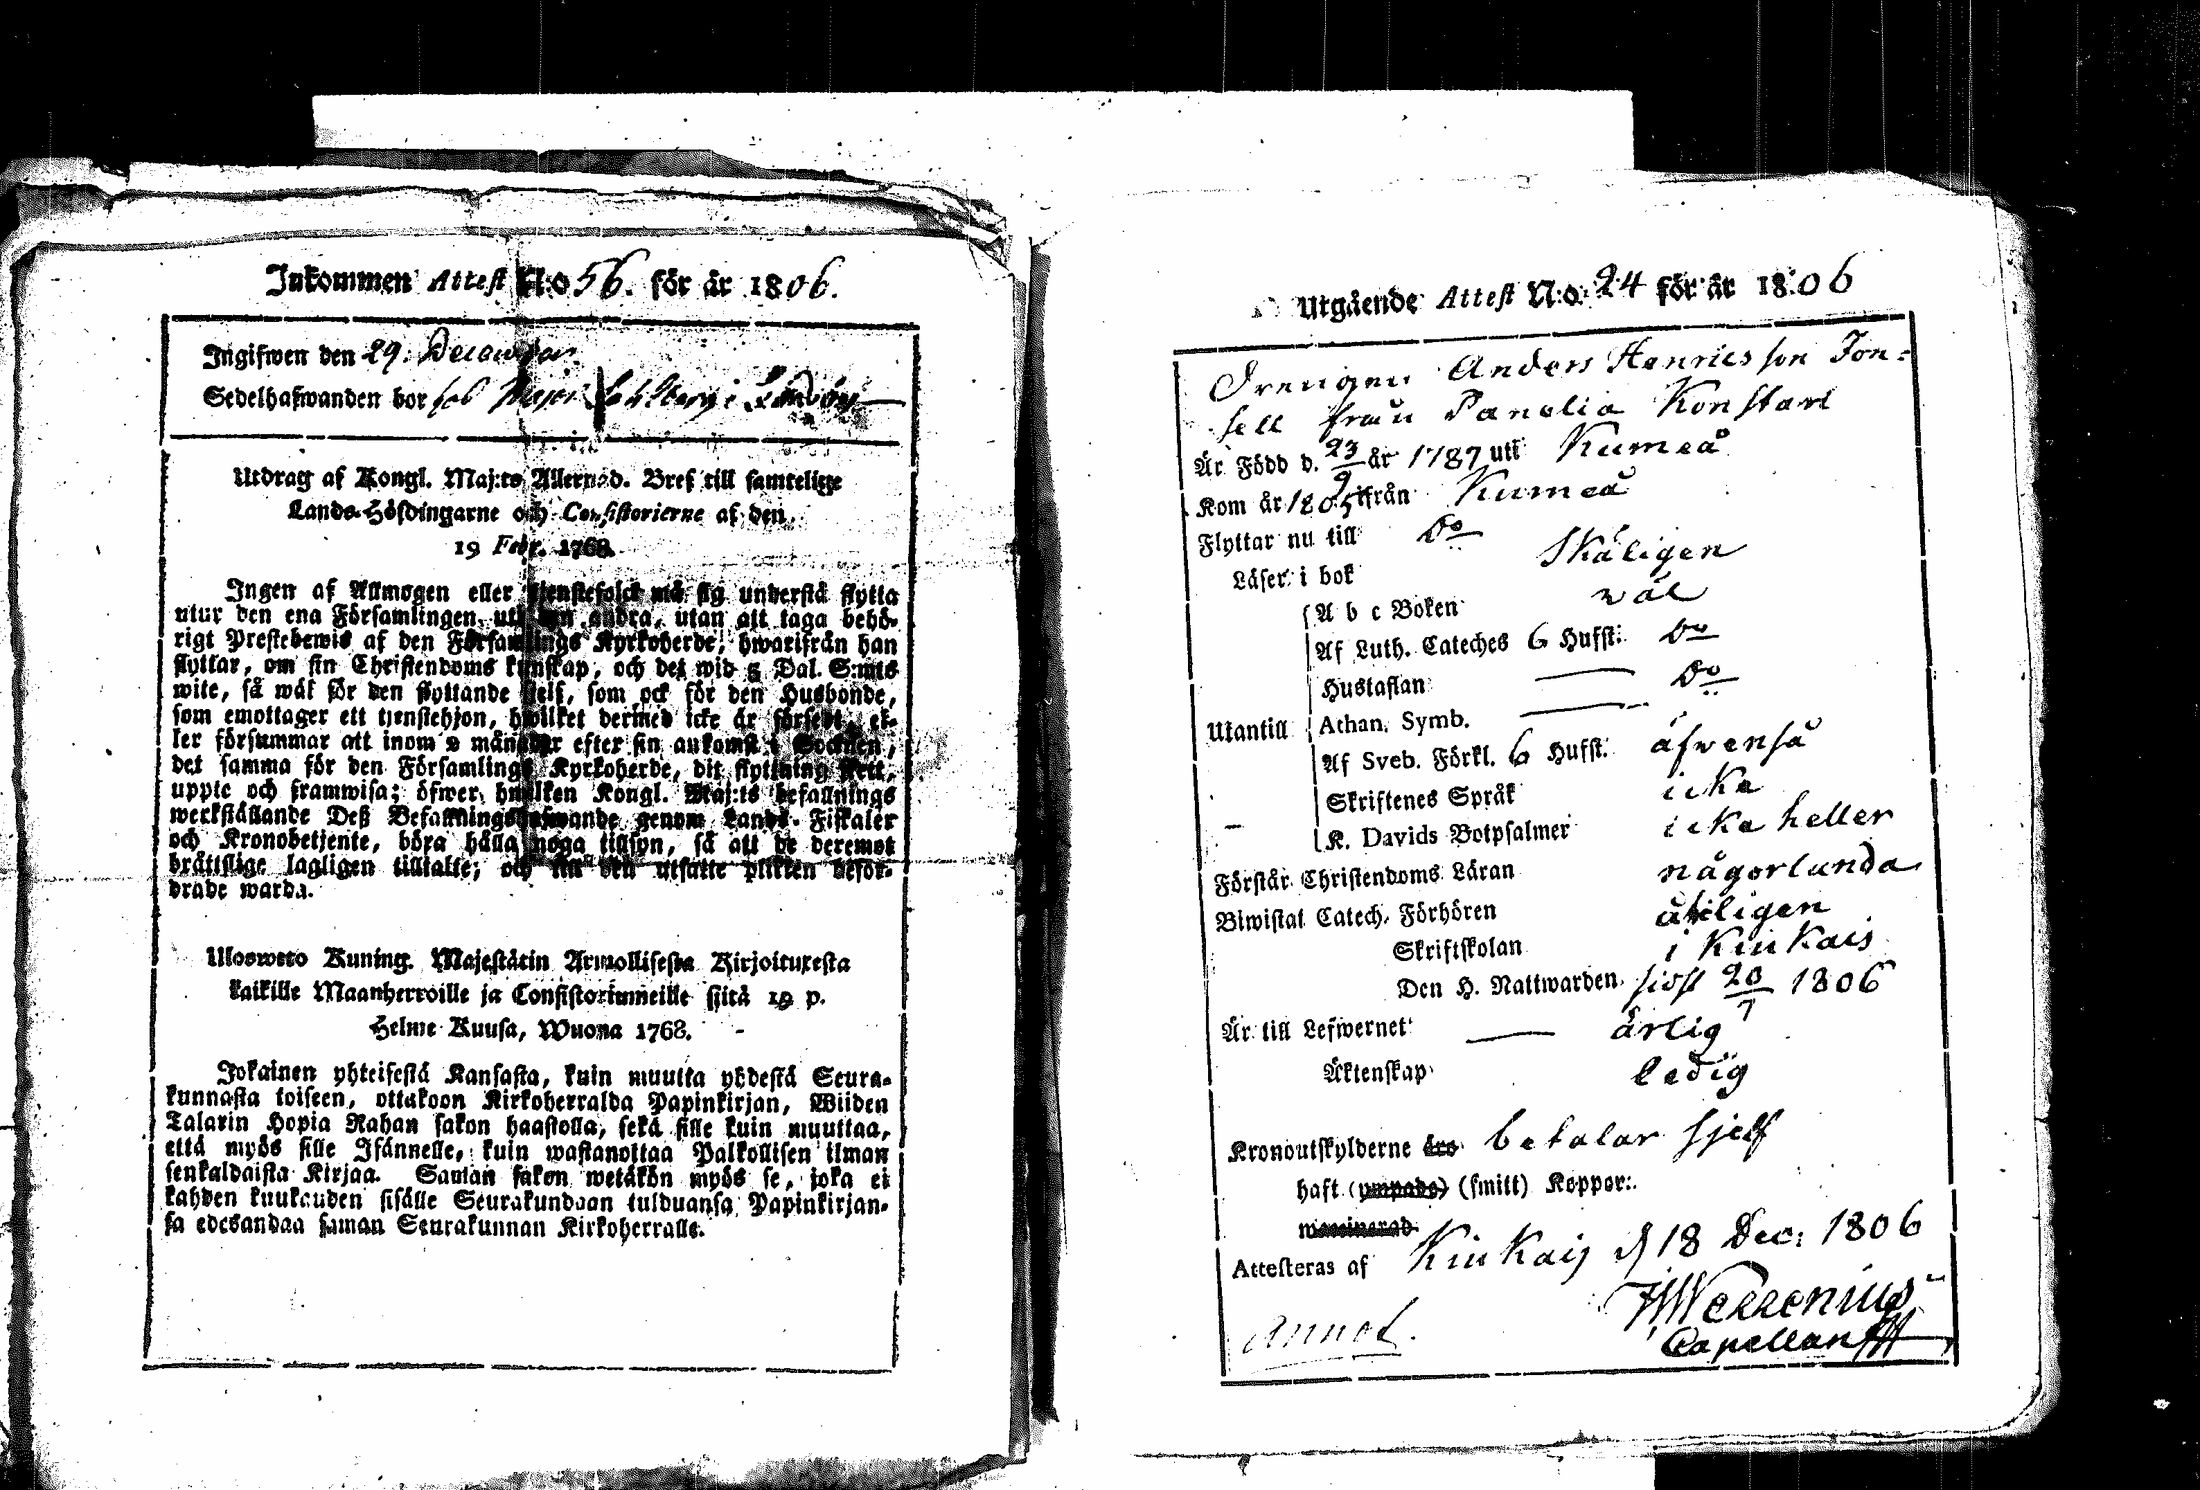 Inkommen Attest N:o 56. för år 1806.
Ingifwen den 29. December
Sedelhafwanden bor hos Major
Utdrag af Kongl. Maj:ts Allernåd. Bref till samtelige
Lands-Höfdingarne och Consistorierne af den
19 Febr. 1768.
Ingen af Allmogen eller tjenstefolck må sig understå flytta
utur den ena Församlingen uti den andra, utan att taga behö-
rigt Prestebewis af den Församlings Kyrkoherde, hwarifrån han
flyttar, om sin Christendoms kunskap, och det wid 5 Dal. S:mts
wite, så wäl för den flyttande sielf, som ock för den Husbonde,
som emottager ett tjenstehjon, hwilket dermed icke är försedt, el-
ler försummar att inom 2 månader efter sin ankomst i Socknen,
det samma för den Församlings Kyrkoherde, dit flyttning skett,
uppte och framwisa; öfwer hwilken Kongl. Maj:ts befallnings
werkställande Deß Befallningshafwande genom Lands-Fiskaler
och Kronobetjente, böra hålla noga tillsyn, så att de deremot
bråttslige lagligen tilltalte; och till den utsatte plikten befor-
drade warda.
Uloswetto Kuning. Majestätin Armollisesta Kirjoituxesta
kaikille Maanherroille ja Consistoriumeille siitä 19 p.
Helme Kuusa, Wuona 1768.
Jokainen yhteisestä Kansasta, kuin muutta yhdestä Seura-
kunnasta toiseen, ottakoon Kirkoherralda Papinkirjan, Wiiden
Talarin Hopia Rahan sakon haastolla, sekä sille kuin muuttaa,
että myös sille Isännelle, kuin wastanottaa Palkollisen ilman
senkaldaista Kirjaa. Saman sakon wetäkön myös se, joka ei
kahden kuukauden sisälle Seurakundaan tulduansa Papinkirjan-
sa edesandaa saman Seurakunnan Kirkoherralle.
Utgående Attest N:o 24 för år 1806
Drengen Anders Henricsson Jon-
sell från Panelia Konstari
Är Född d. 23/9 år 1787 uti Kumeå
Kom år 1805 ifrån Kumeå
Flyttar nu till Do
Läser i bok Skäligen
A b c Boken wäl
Af Luth. Cateches 6 Hufst: Do
Hustaflan — Do
Utantill Athan. Symb. —
Af Sveb. Förkl. 6 Hufst: äfwenså
Skriftenes Språk icke
K. Davids Botpsalmer icke heller
Förstår Christendoms Läran någorlunda
Biwistat Catech. Förhören åtteligen
Skriftskolan i Kiukais
Den H. Nattwarden sidst 20/7 1806
Är till Lefwernet — ärlig
Äktenskap ledig
Kronoutskylderne äro betalar sjelf
haft (ympade) (smitt) Koppor:
Attesteras af Kiukais d 18 Dec: 1806
Capellan
Annot.